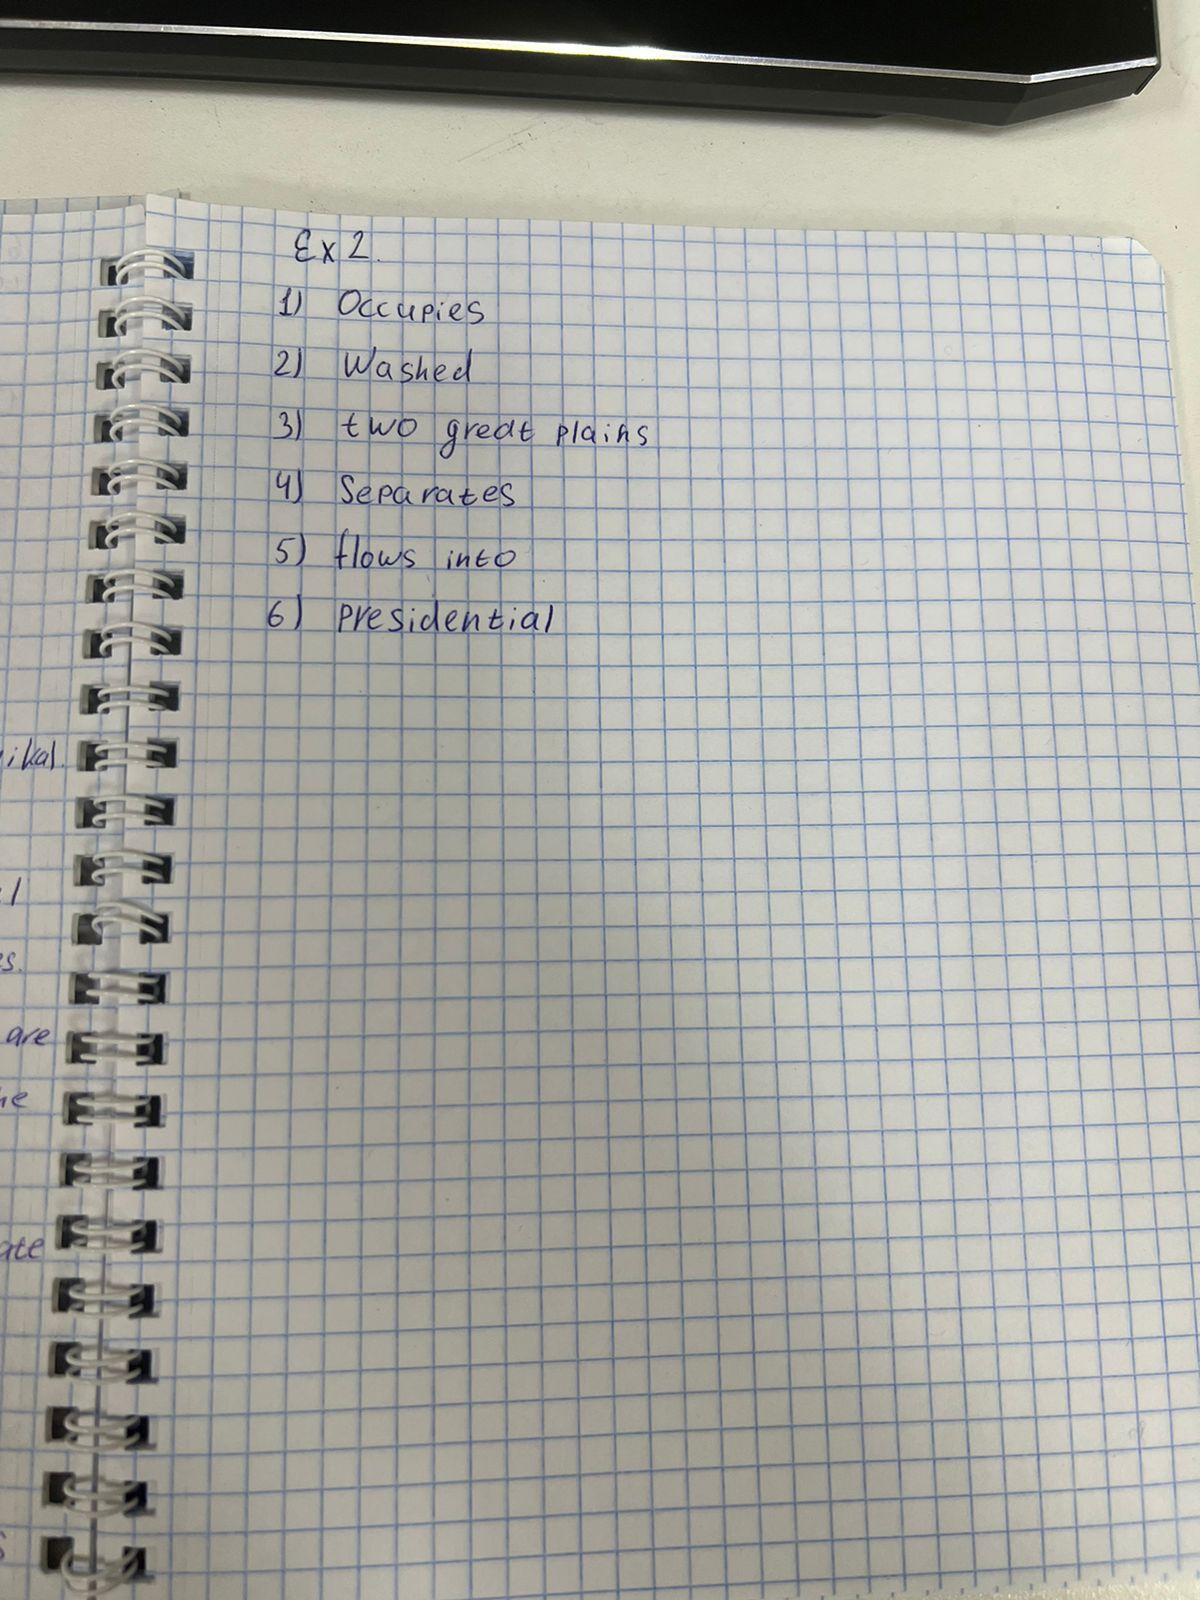 Ex 2.
1) Occupies
2) Washed
3) two great plains
4) Separates
5) flows into
6) presidential
are